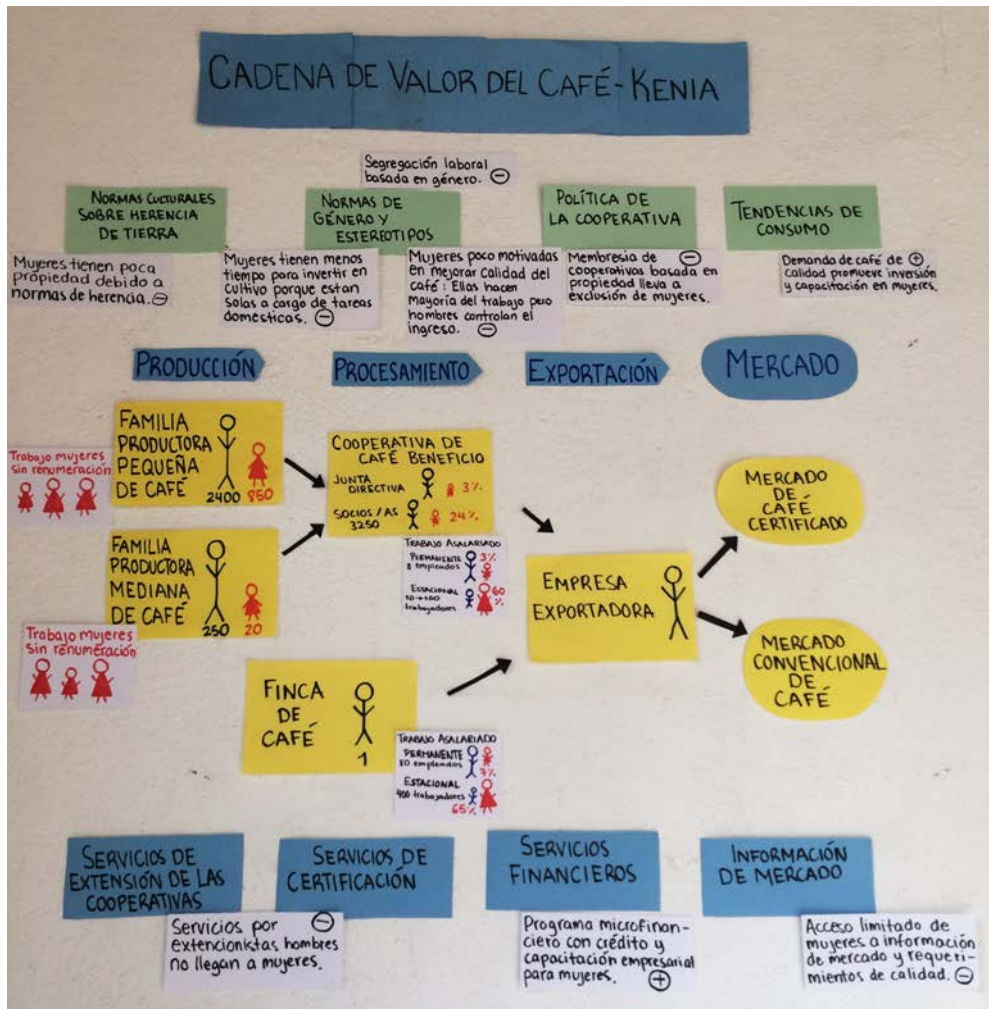 CADENA DE VALOR DEL CAFÉ-KENIA
Segregación laboral
basada en género. ⊖
NORMAS CULTURALES
SOBRE HERENCIA
DE TIERRA
Mujeres tienen poca
propiedad debido a
normas de herencia. ⊖
NORMAS DE
GÉNERO Y
ESTEREOTIPOS
Mujeres tienen menos
tiempo para invertir en
cultivo porque estan
solas a cargo de tareas
domesticas. ⊖
Mujeres poco motivadas
en mejorar calidad del
café: Ellas hacen
mayoría del trabajo pero
hombres controlan el
ingreso. ⊖
POLÍTICA DE
LA COOPERATIVA
Membresia de ⊖
cooperativas basada en
propiedad lleva a
exclusión de mujeres.
TENDENCIAS DE
CONSUMO
Demanda de café de ⊕
calidad promueve inversión
y capacitación en mujeres.
PRODUCCIÓN
PROCESAMIENTO
EXPORTACIÓN
MERCADO
FAMILIA
PRODUCTORA
PEQUEÑA
DE CAFÉ
2400 850
Trabajo mujeres
sin renumeración
FAMILIA
PRODUCTORA
MEDIANA
DE CAFÉ
250 20
Trabajo mujeres
sin renumeración
COOPERATIVA DE
CAFÉ BENEFICIO
JUNTA
DIRECTIVA 3%
SOCIOS/AS
3250 24%
TRABAJO ASALARIADO
PERMANENTE 3%
8 empleados
ESTACIONAL 60
%
trabajadores
FINCA
DE
CAFÉ
1
TRABAJO ASALARIADO
PERMANENTE
empleados
7%
ESTACIONAL
400 trabajadores
65%
EMPRESA
EXPORTADORA
MERCADO
DE
CAFÉ
CERTIFICADO
MERCADO
CONVENCIONAL
DE
CAFÉ
SERVICIOS DE
EXTENSIÓN DE LAS
COOPERATIVAS
Servicios por ⊖
extencionistas hombres
no llegan a mujeres.
SERVICIOS DE
CERTIFICACIÓN
SERVICIOS
FINANCIEROS
Programa microfinan-
ciero con crédito y
capacitación empresarial
para mujeres. ⊕
INFORMACIÓN
DE MERCADO
Acceso limitado de
mujeres a información
de mercado y requeri-
mientos de calidad. ⊖